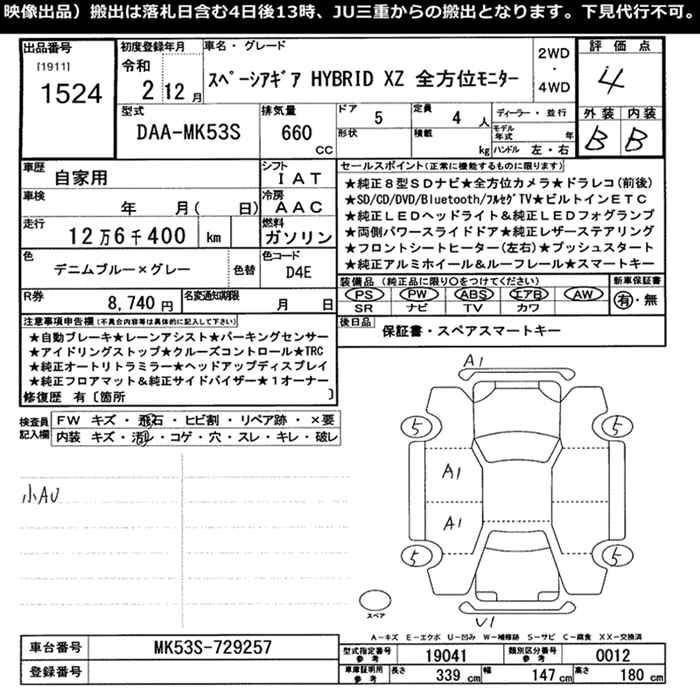 映像出品）搬出は落札日含む4日後13時、JU三重からの搬出となります。下見代行不可。
出品番号
[1911]
1524
初度登録年月
令和
2 12月
車名・グレード
スペーシアギア HYBRID XZ 全方位モニター
2WD
・
4WD
評価点
4
外装 内装
B B
型式
DAA-MK53S
排気量
660
CC
ドア 5
形状
定員 4 人
積載 kg
ディーラー・並行
モデル年式 年
ハンドル 左・右
車歴
自家用
シフト
IAT
車検
年 月( 日)
冷房
AAC
走行
12万6千400 km
燃料
ガソリン
色
デニムブルー×グレー
色替
色コード
D4E
R券
8,740 円
名変通知期限
月 日
セールスポイント(正常に機能するものに限ります)
★純正8型SDナビ★全方位カメラ★ドラレコ(前後)
★SD/CD/DVD/Bluetooth/フルセグTV★ビルトインETC
★純正LEDヘッドライト&純正LEDフォグランプ
★両側パワースライドドア★純正レザーステアリング
★フロントシートヒーター(左右)★プッシュスタート
★純正アルミホイール&ルーフレール★スマートキー
装備品(純正品に限り○をつけてください)
PS PW ABS エアB AW
SR ナビ TV カワ
新車保証書
有・無
後日品
保証書・スペアスマートキー
注意事項申告欄(不具合内容等は具体的に記入して下さい)
★自動ブレーキ★レーンアシスト★パーキングセンサー
★アイドリングストップ★クルーズコントロール★TRC
★純正オートリトラミラー★ヘッドアップディスプレイ
★純正フロアマット&純正サイドバイザー★1オーナー
修復歴 有〔箇所 〕
検査員
記入欄
FW キズ・飛石・ヒビ割・リペア跡・×要
内装 キズ・汚レ・コゲ・穴・スレ・キレ・破レ
小AU
A1
5 5
A1
A1
5 5
スペア
U1
A－キズ E－エクボ U－凹み W－補修跡 S－サビ C－腐食 XX－交換済
車台番号
MK53S-729257
登録番号
型式指定番号
参考
19041
類別区分番号
参考
0012
車庫証明用
参考
長さ 339 cm 幅 147 cm 高さ 180 cm